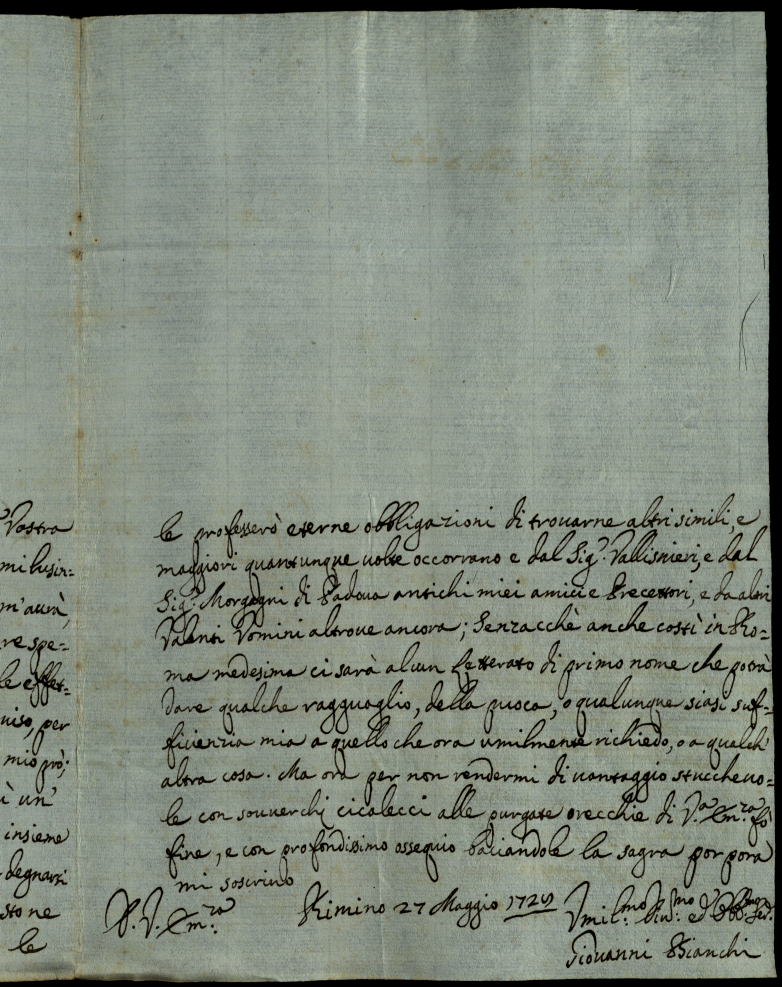 Vostra
mi lusin=
m'aurà,
re spe=
le effet=
uiso, per
mio prò;
ì un'
insieme
degnarsi
sto ne
le
le professerò eterne obbligazioni di trouarne altri simili, e
maggiori quantunque uolte occorrano e dal Sig.r Vallisnieri, e dal
Sig.r Morgagni di Padoua antichi miei amici e Precettori, e da altri
Valenti Vomini altroue ancora; Senzacchè anche costì in Ro=
ma medesima ci sarà alcun Letterato di primo nome che potrà
dare qualche ragguaglio, della puoca, o qualunque siasi suf=
ficienzia mia a quello che ora umilmente richiedo, o a qualch'
altra cosa. Ma ora per non rendermi di uantaggio stuccheuo=
le con souuerchj cicalecci alle purgate orecchie di V.a Em.za fò
fine, e con profondissimo ossequio baciandole la sagra porpora
mi soscriuo
D. V. Em.za
Rimino 27 Maggio 1729
Vmil.mo Diu.mo ed Obb.mo Ser.
Giouanni Bianchi